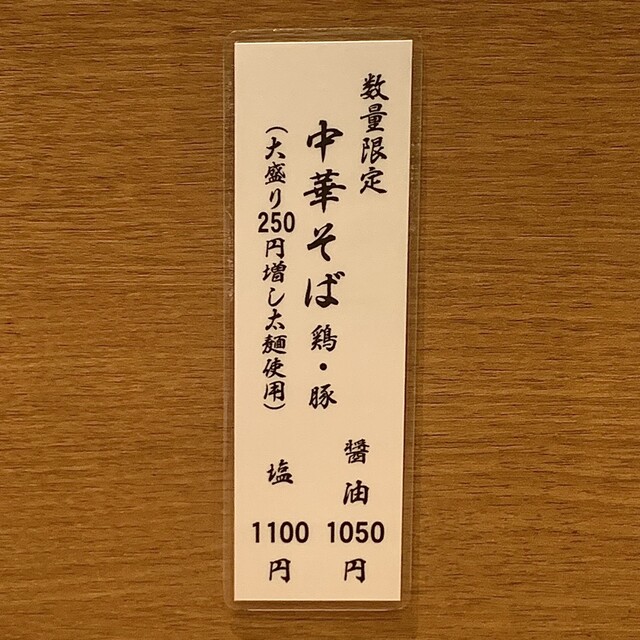 数量限定
中華そば 鶏・豚
(大盛り250円増し太麺使用)
醤油 1050円
塩 1100円